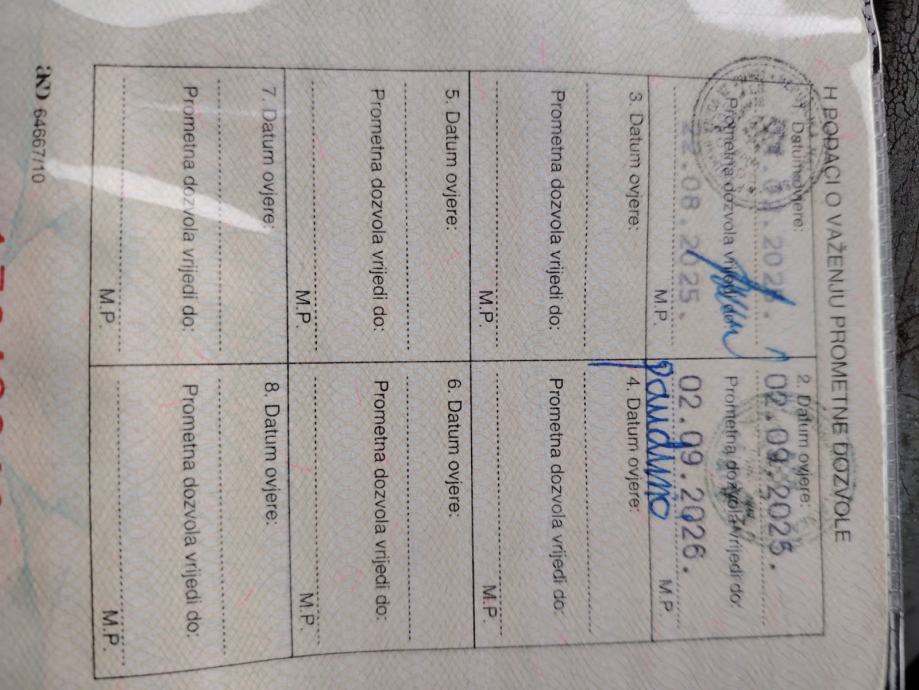 H PODACI O VAŽENJU PROMETNE DOZVOLE
1. Datum ovjere:
Prometna dozvola vrijedi do:
22.08.2025.
M.P.
2. Datum ovjere:
02.09.2025.
Prometna dozvola vrijedi do:
02.09.2026.
M.P.
3. Datum ovjere:
Prometna dozvola vrijedi do:
M.P.
4. Datum ovjere:
Prometna dozvola vrijedi do:
M.P.
5. Datum ovjere:
Prometna dozvola vrijedi do:
M.P.
6. Datum ovjere:
Prometna dozvola vrijedi do:
M.P.
7. Datum ovjere:
Prometna dozvola vrijedi do:
M.P.
8. Datum ovjere:
Prometna dozvola vrijedi do:
M.P.
64667/10